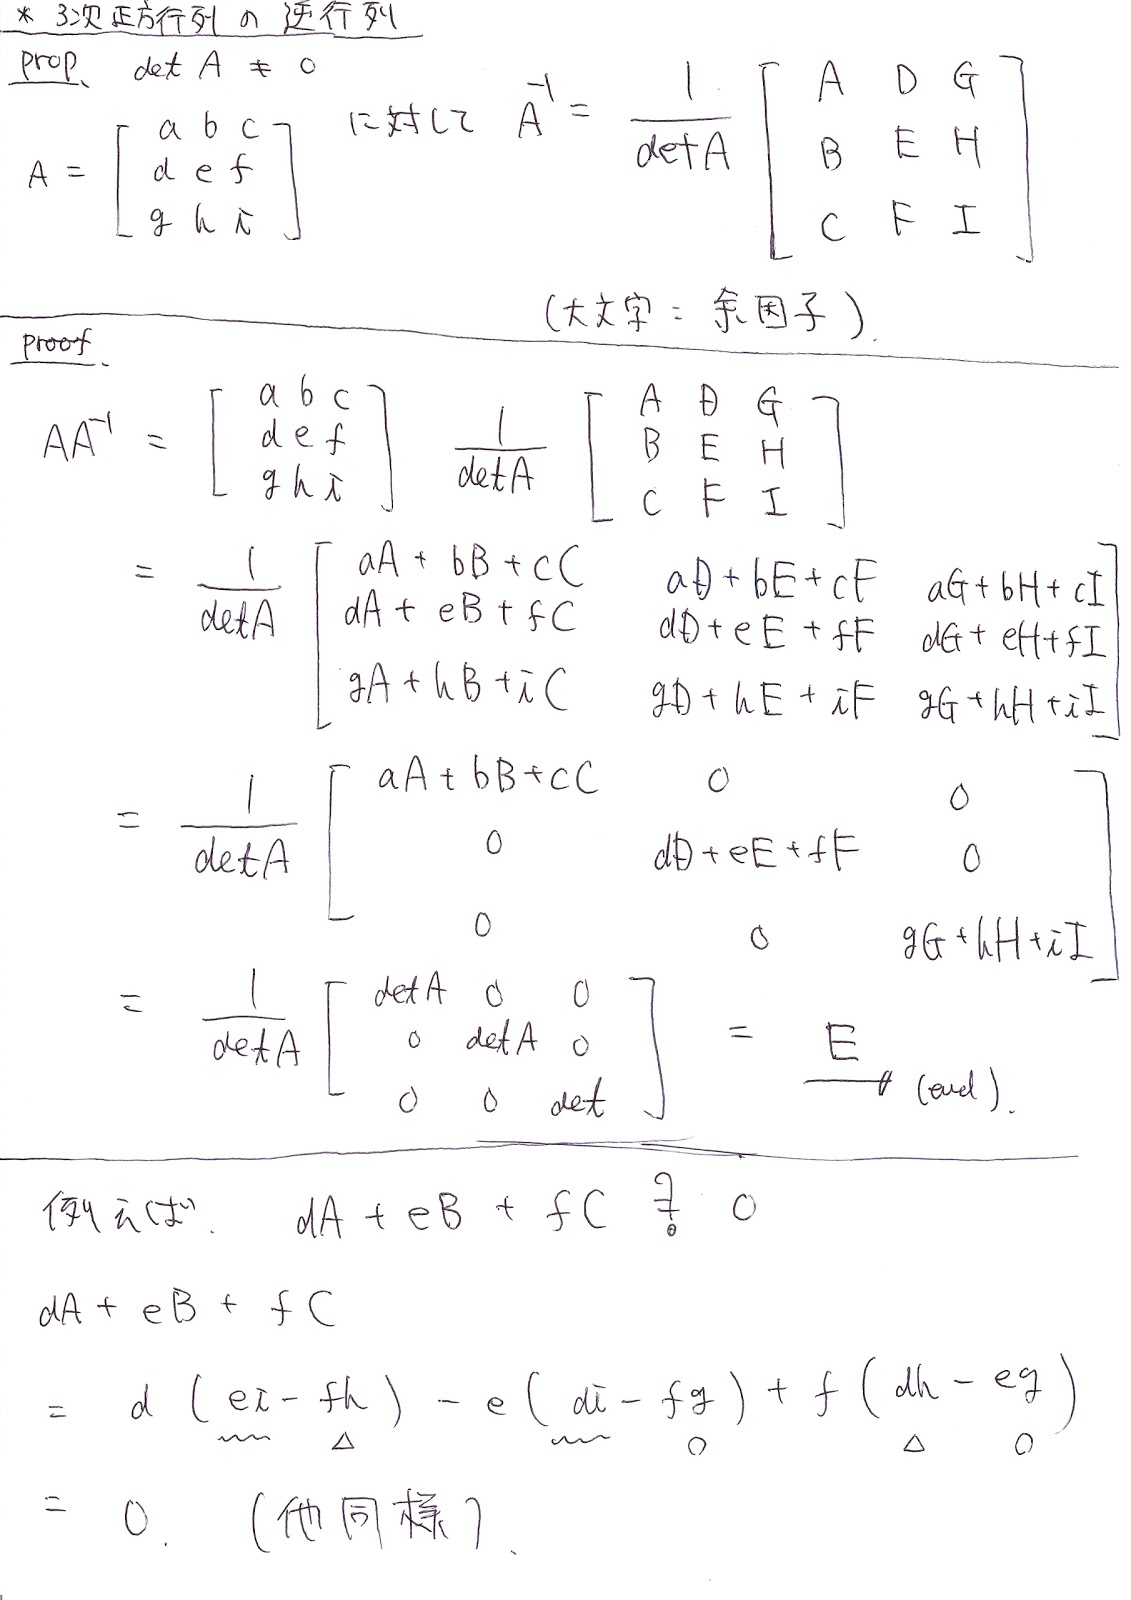 * 3次正方行列の逆行列
prop. det A ≠ 0
A = [ a b c ; d e f ; g h i ] に対して A⁻¹ = 1/detA [ A D G ; B E H ; C F I ]
(大文字 = 余因子).
proof.
AA⁻¹ = [ a b c ; d e f ; g h i ] 1/detA [ A D G ; B E H ; C F I ]
= 1/detA [ aA + bB + cC  aD + bE + cF  aG + bH + cI ; dA + eB + fC  dD + eE + fF  dG + eH + fI ; gA + hB + iC  gD + hE + iF  gG + hH + iI ]
= 1/detA [ aA + bB + cC  0  0 ; 0  dD + eE + fF  0 ; 0  0  gG + hH + iI ]
= 1/detA [ detA 0 0 ; 0 detA 0 ; 0 0 det ] = E (end).
例えば. dA + eB + fC ≟ 0
dA + eB + fC
= d (ei - fh) - e (di - fg) + f (dh - eg)
= 0. (他同様).